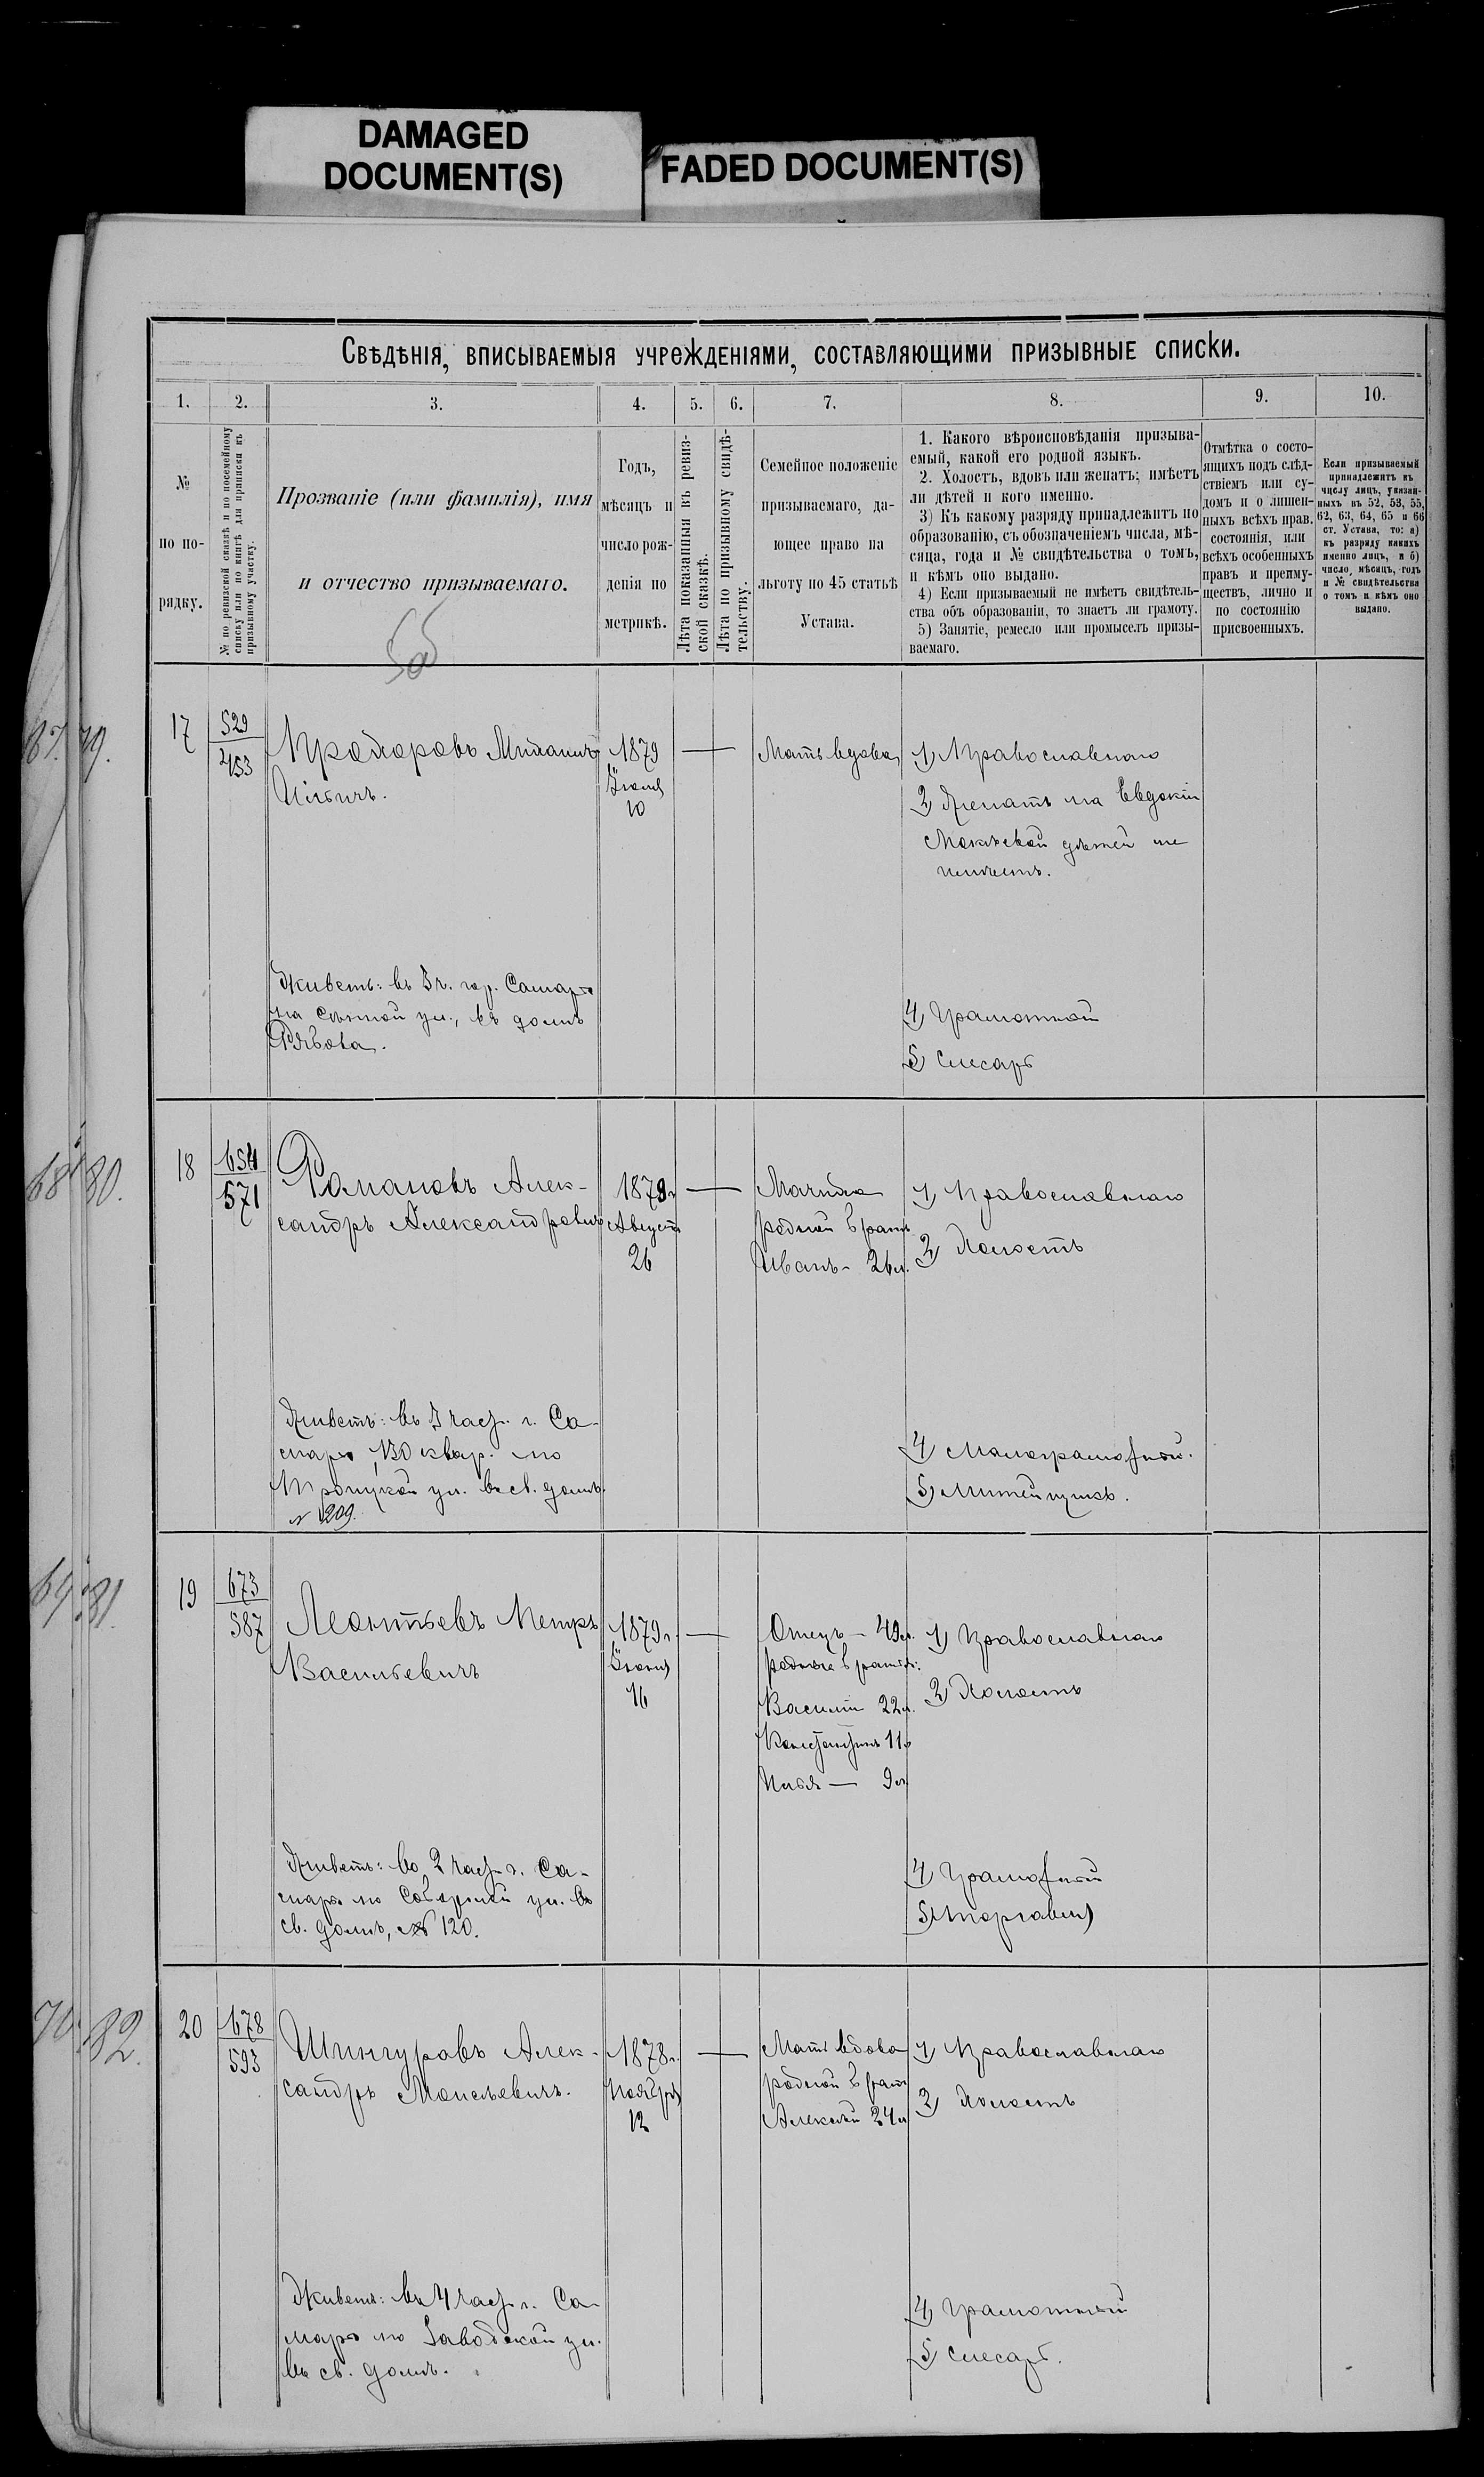 DAMAGED
DOCUMENT(S)
FADED DOCUMENT(S)
Свѣдѣнія, вписываемыя учрежденіями, составляющими призывные списки.
1. 2. 3. 4. 5. 6. 7. 8. 9. 10.
№
по по-
рядку.
№ по ревизской сказкѣ и по посемейному
списку или по книгѣ для приписки къ
призывному участку.
Прозваніе (или фамилія), имя
и отчество призываемаго.
Годъ,
мѣсяцъ и
число рож-
денія по
метрикѣ.
Лѣта показанныя въ ревиз-
ской сказкѣ.
Лѣта по призывному свидѣ-
тельству.
Семейное положеніе
призываемаго, да-
ющее право на
льготу по 45 статьѣ
Устава.
1. Какого вѣроисповѣданія призыва-
емый, какой его родной языкъ.
2. Холостъ, вдовъ или женатъ; имѣетъ
ли дѣтей и кого именно.
3) Къ какому разряду принадлежитъ по
образованію, съ обозначеніемъ числа, мѣ-
сяца, года и № свидѣтельства о томъ,
и кѣмъ оно выдано.
4) Если призываемый не имѣетъ свидѣтель-
ства объ образованіи, то знаетъ ли грамоту.
5) Занятіе, ремесло или промыселъ призы-
ваемаго.
Отмѣтка о состо-
ящихъ подъ слѣд-
ствіемъ или су-
домъ и о лишен-
ныхъ всѣхъ прав.
состоянія, или
всѣхъ особенныхъ
правъ и преиму-
ществъ, лично и
по состоянію
присвоенныхъ.
Если призываемый
принадлежитъ къ
числу лицъ, указан-
ныхъ въ 52, 53, 55,
62, 63, 64, 65 и 66
ст. Устава, то: а)
къ разряду какихъ
именно лицъ, и б)
число, мѣсяцъ, годъ
и № свидѣтельства
о томъ и кѣмъ оно
выдано.
67. 79.
17
529
453
Ильичъ.
1879
10
Мать вдова
1) Православнаго
2) Женатъ на Евдокіи
Мокѣевой дѣтей не
имѣетъ.
Живетъ: въ 3 ч. гор. Самары
на Сѣнной ул., въ домѣ
4) Грамотной
5) Слесарь
68 80.
18
654
571
Романовъ Алек-
сандръ Александровичъ
1879г
Август
26
Мачиха
родной братъ
Иванъ - 26л.
1) Православнаго
2) Холостъ
Живетъ: въ 3 част. г. Са-
мары, 130 квар. по
Троицкой ул. въ св. домѣ
№ 209.
4) Малограмотной.
5) Литейщикъ.
69 81.
19
673
587
Леонтьевъ Петръ
Васильевичъ
1879г.
16
Отецъ - 49л.
родные братья:
Василій 22л.
Константинъ 11л
Илья — 9л
1) Православнаго
2) Холостъ
Живетъ: во 2 част. г. Са-
мары по Соборной ул. въ
св. домѣ, № 120.
4) Грамотной
5) Торговля
70. 82.
20
678
593
Шингуровъ Алек-
сандръ Моисѣевичъ.
1878г.
Ноября
12
Мать вдова
родной братъ
Алексѣй 24л
1) Православнаго
2) Холостъ
Живетъ: въ 4 част. г. Са-
мары по Заводской ул.
въ св. домѣ.
4) Грамотной
5) Слесарь.